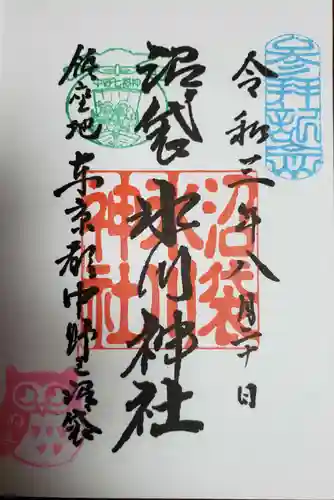 参拝記念
令和三年八月二十日
沼袋
氷川神社
沼袋
氷川
神社
鎮座地 東京都中野区沼袋